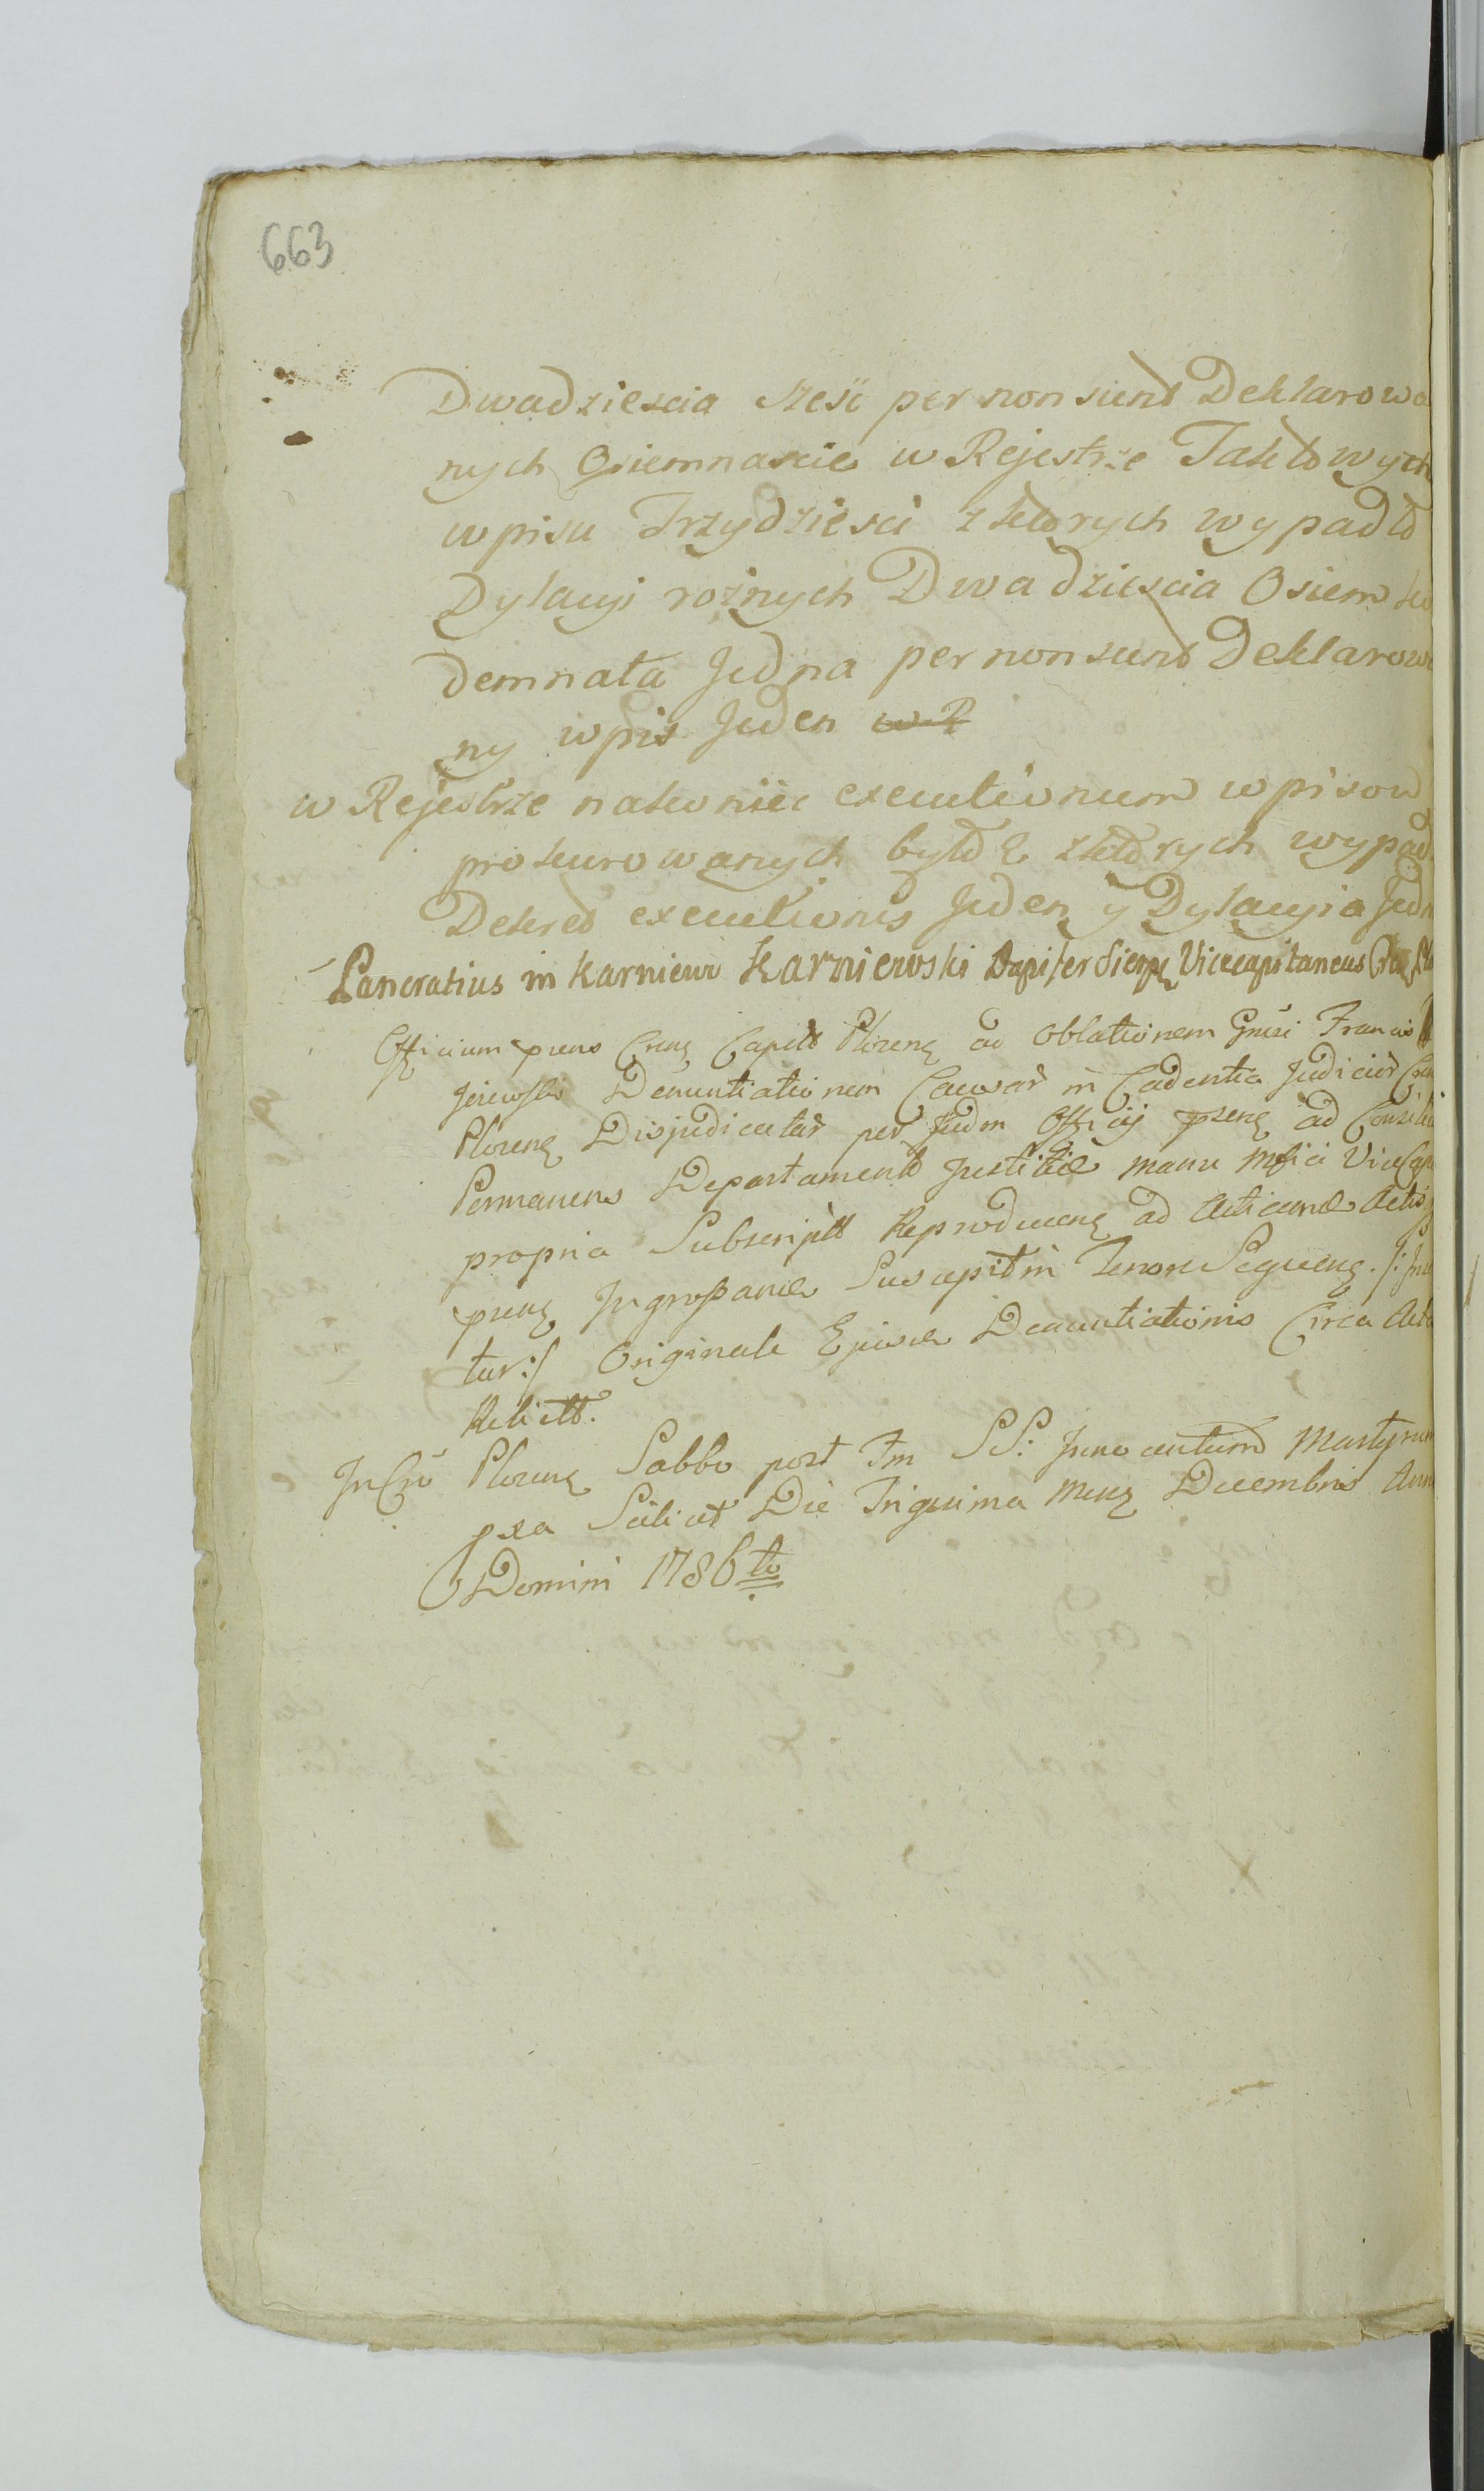 663
Dwadziescia szesć per non sunt Deklarowa
nych Osiemnascie w Rejestrze Taktowych
wpisu Trzydziesci z ktorych wypadło
Dylacyi rożnych Dwadziescia Osiem ko
demnata Jedna per non sunt Deklarowa
ny wpis Jeden w R
w Rejestrze nakoniec executionum wpisow
prokurowanych było 2 z ktorych wypadł
Dekret executionis Jeden y Dylacyia Jedn
Pancratius in Karniewo Karniewski Dapifer Sierpę Vicecapitaneus
Officium prens Crens Capit Plocens ad Oblationem Gnusi Francis
Denuntiationem Causar in Cadentia Judicior
Plocens Disjudicatar per Judm Officij prens ad Consiliu
Permanens Departament Justitiæ manu Mfici ViceCap
propria Subscript Reproducens ad Acticand Actis
prens Ingrossand Suscepit in Tenore Sequens. /: In
tur:/ Originale Ejusd Denuntiationis Circa Acta
Relictt.
In Cro Plocens Sabbo post Fm SS: Innocentum Martyrum
pxa Scilicet Die Trigesima Mens Decembris Ann
Domini 1786to